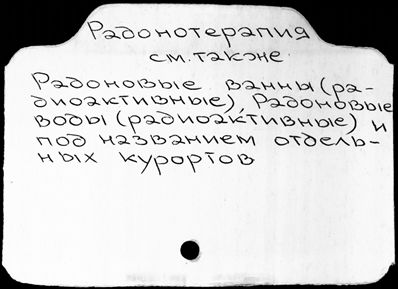 Радонотерапия
см. также
Радоновые ванны (ра-
диоактивные), Радоновые
воды (радиоактивные) и
под названием отдель-
ных курортов